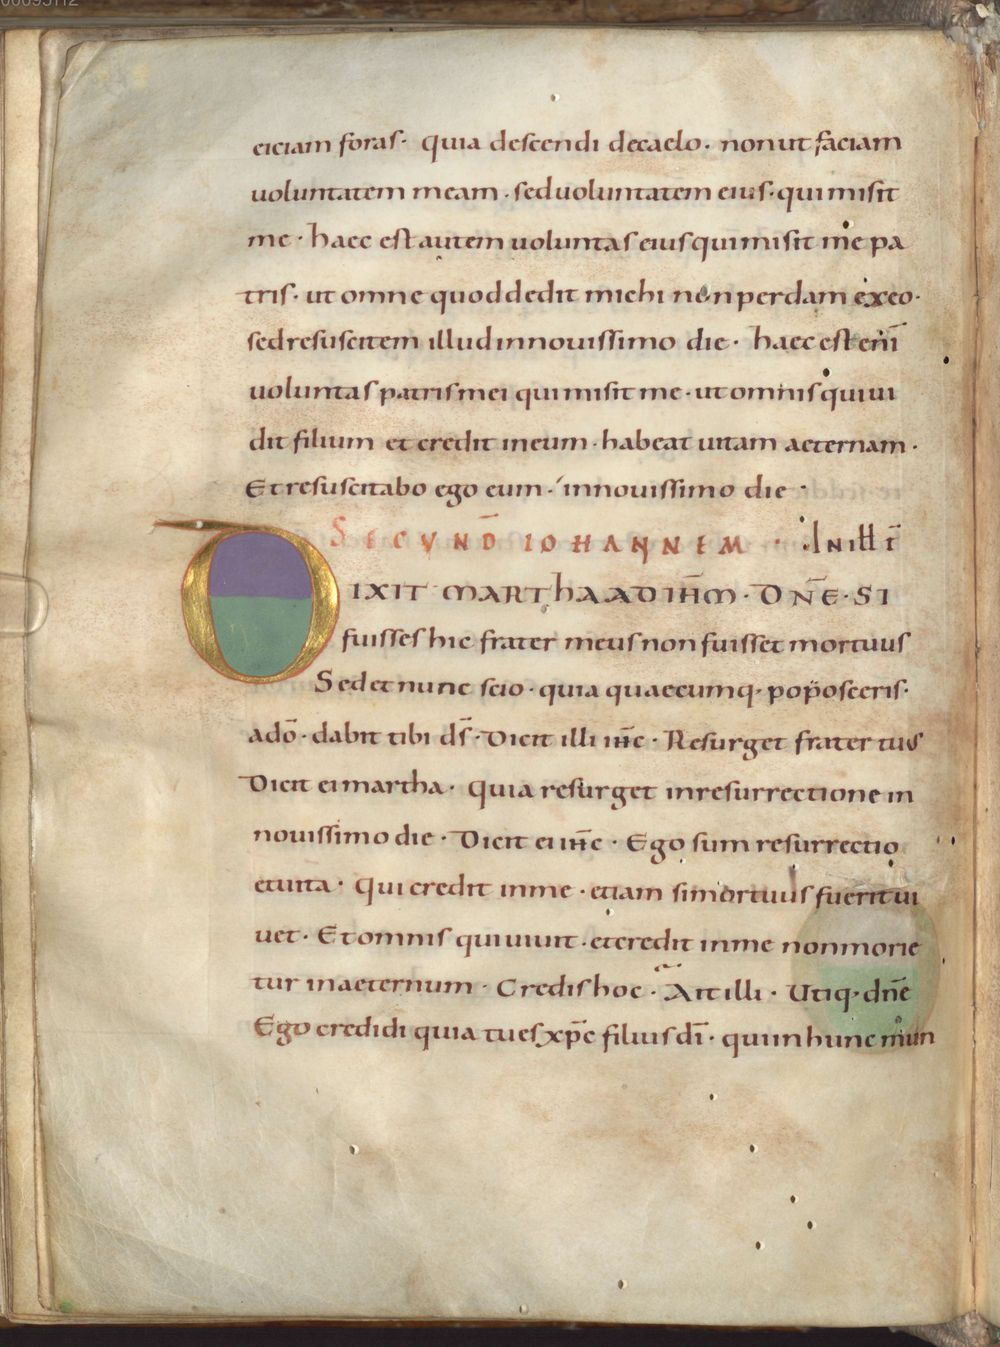 eiciam foras · quia descendi decaelo · nonut faciam
uoluntatem meam · seduoluntatem eius · quimisit
me · haec estautem uoluntas eiusquimisit me pa
tris · ut omne quoddedit michi nonperdam exeo ·
sedresuscitem illudinnouissimo die · haec est eni̅
uoluntas patrismei quimisit me · ut omnisquiui
dit filium et credit ineum · habeat uitam aeternam ·
Etresuscitabo ego eum · innouissimo die ·
SECVND̅ IOHANNEM · In illt̅
DIXIT MARTHAADIH̅M · DN̅E · SI
fuisses hic frater meusnonfuisset mortuus
Sedetnunc scio · quia quaecumq · poposceris ·
ado̅ · dabit tibi ds̅ · Dicit illi ih̅c · Resurget frater tuus
Dicit eimartha · quia resurget inresurrectione in
nouissimo die · Dicit ei ih̅c · Ego sum resurrectio
etuita · Qui credit inme · etiam simortuus fueritui
uet · Etomnis quiuiuit · etcredit inme nonmorie
tur inaeternum · Credishoc · Ait illi · Utiq · dn̅e
Ego credidi quia tuesxp̅c filiusdi̅ · quiinhunc mun